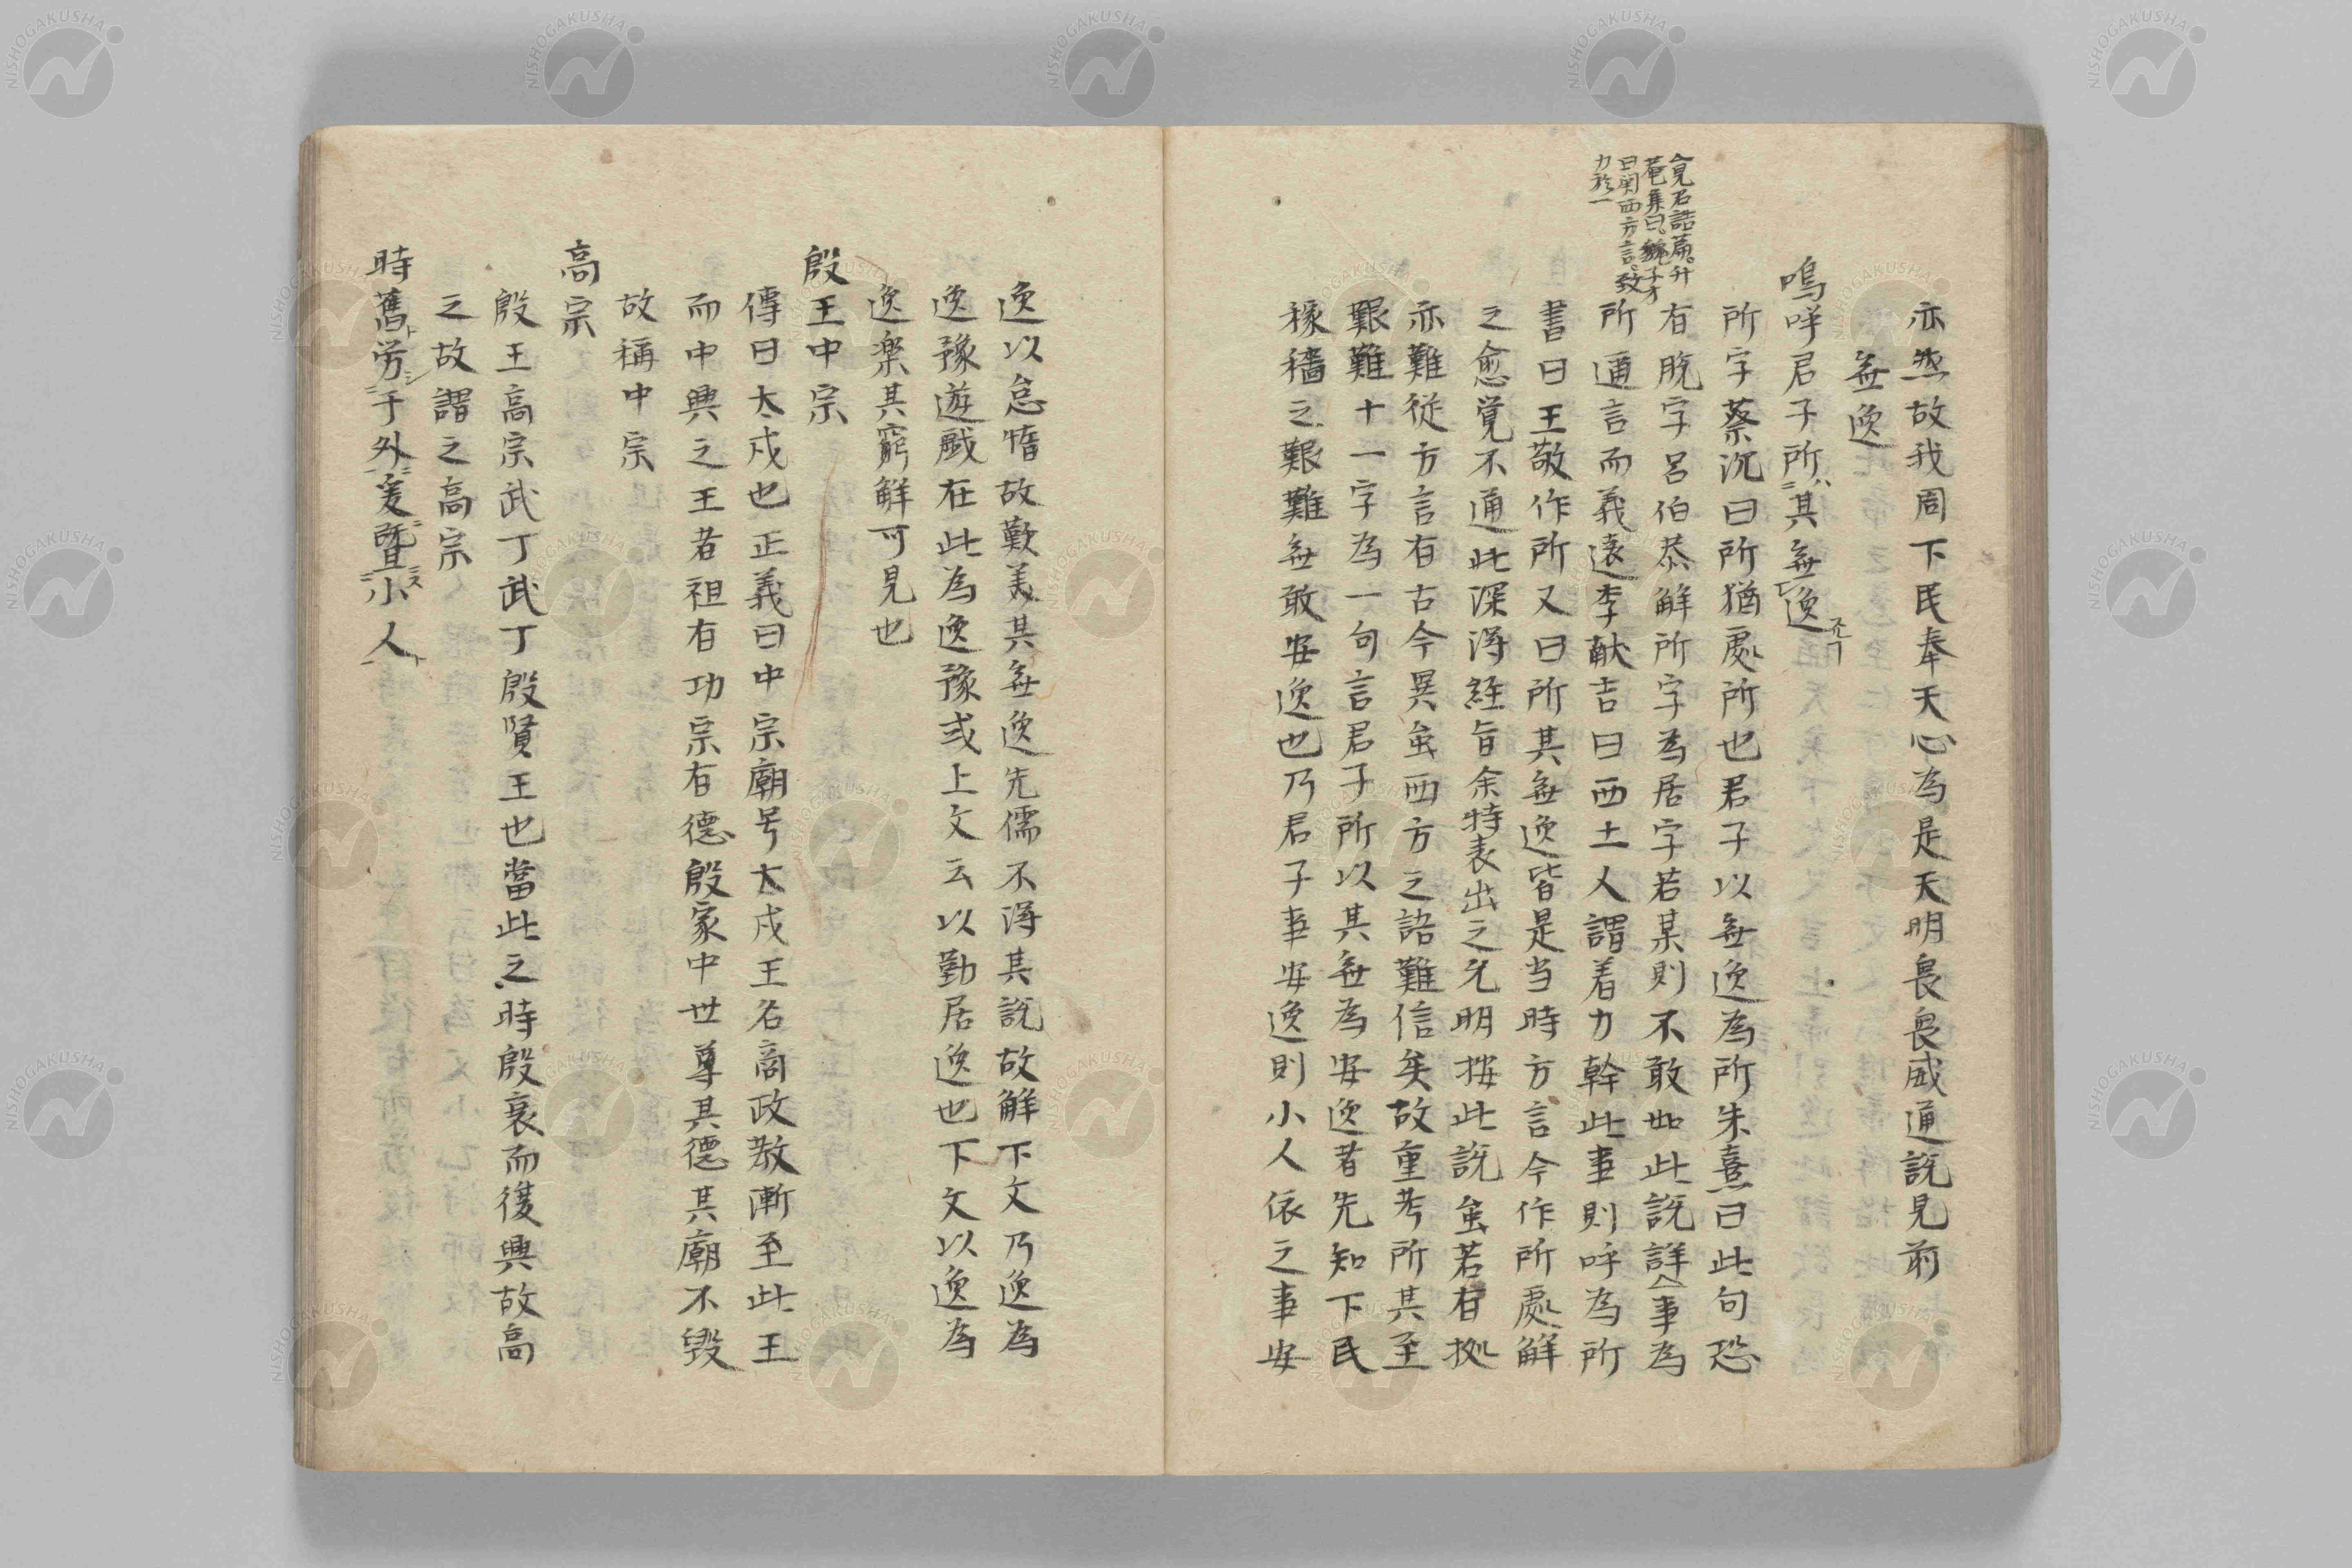 亦然故我周下民奉天心為是天明畏畏威通説見前
無逸
嗚呼君子所其無逸
所字蔡沉曰所猶處所也君子以無逸為所朱熹曰此句恐
有脱字呂伯恭解所字為居字若某則不敢如此説詳事為
所通言而義遠李献吉曰西土人謂着力幹此事則呼為所
書曰王敬作所又曰所其無逸皆是当時方言今作所處解
之愈覚不通此深得経旨余特表出之允明按此説虽若有拠
亦難従方言有古今異虽西方之語難信矣故重考所其至
艱難十一字為一句言君子所以其無為安逸者先知下民
稼穡之艱難無敢安逸也乃君子事安逸則小人依之事安
曰関西方言致
力於一
逸以怠惰故歎美其無逸先儒不得其説故解下文乃逸為
逸豫遊戯在此為逸豫或上文云以勤居逸也下文以逸為
逸楽其窮鮮可見也
殷王中宗
傳曰大戊也正義曰中宗廟号大戊王名商政教漸至此王
而中興之王者祖有功宗有德殷家中世尊其德其廟不毀
故稱中宗
高宗
殷王高宗武丁武丁殷賢王也當此之時殷衰而復興故高
之故謂之高宗
時舊労于外爰暨小人